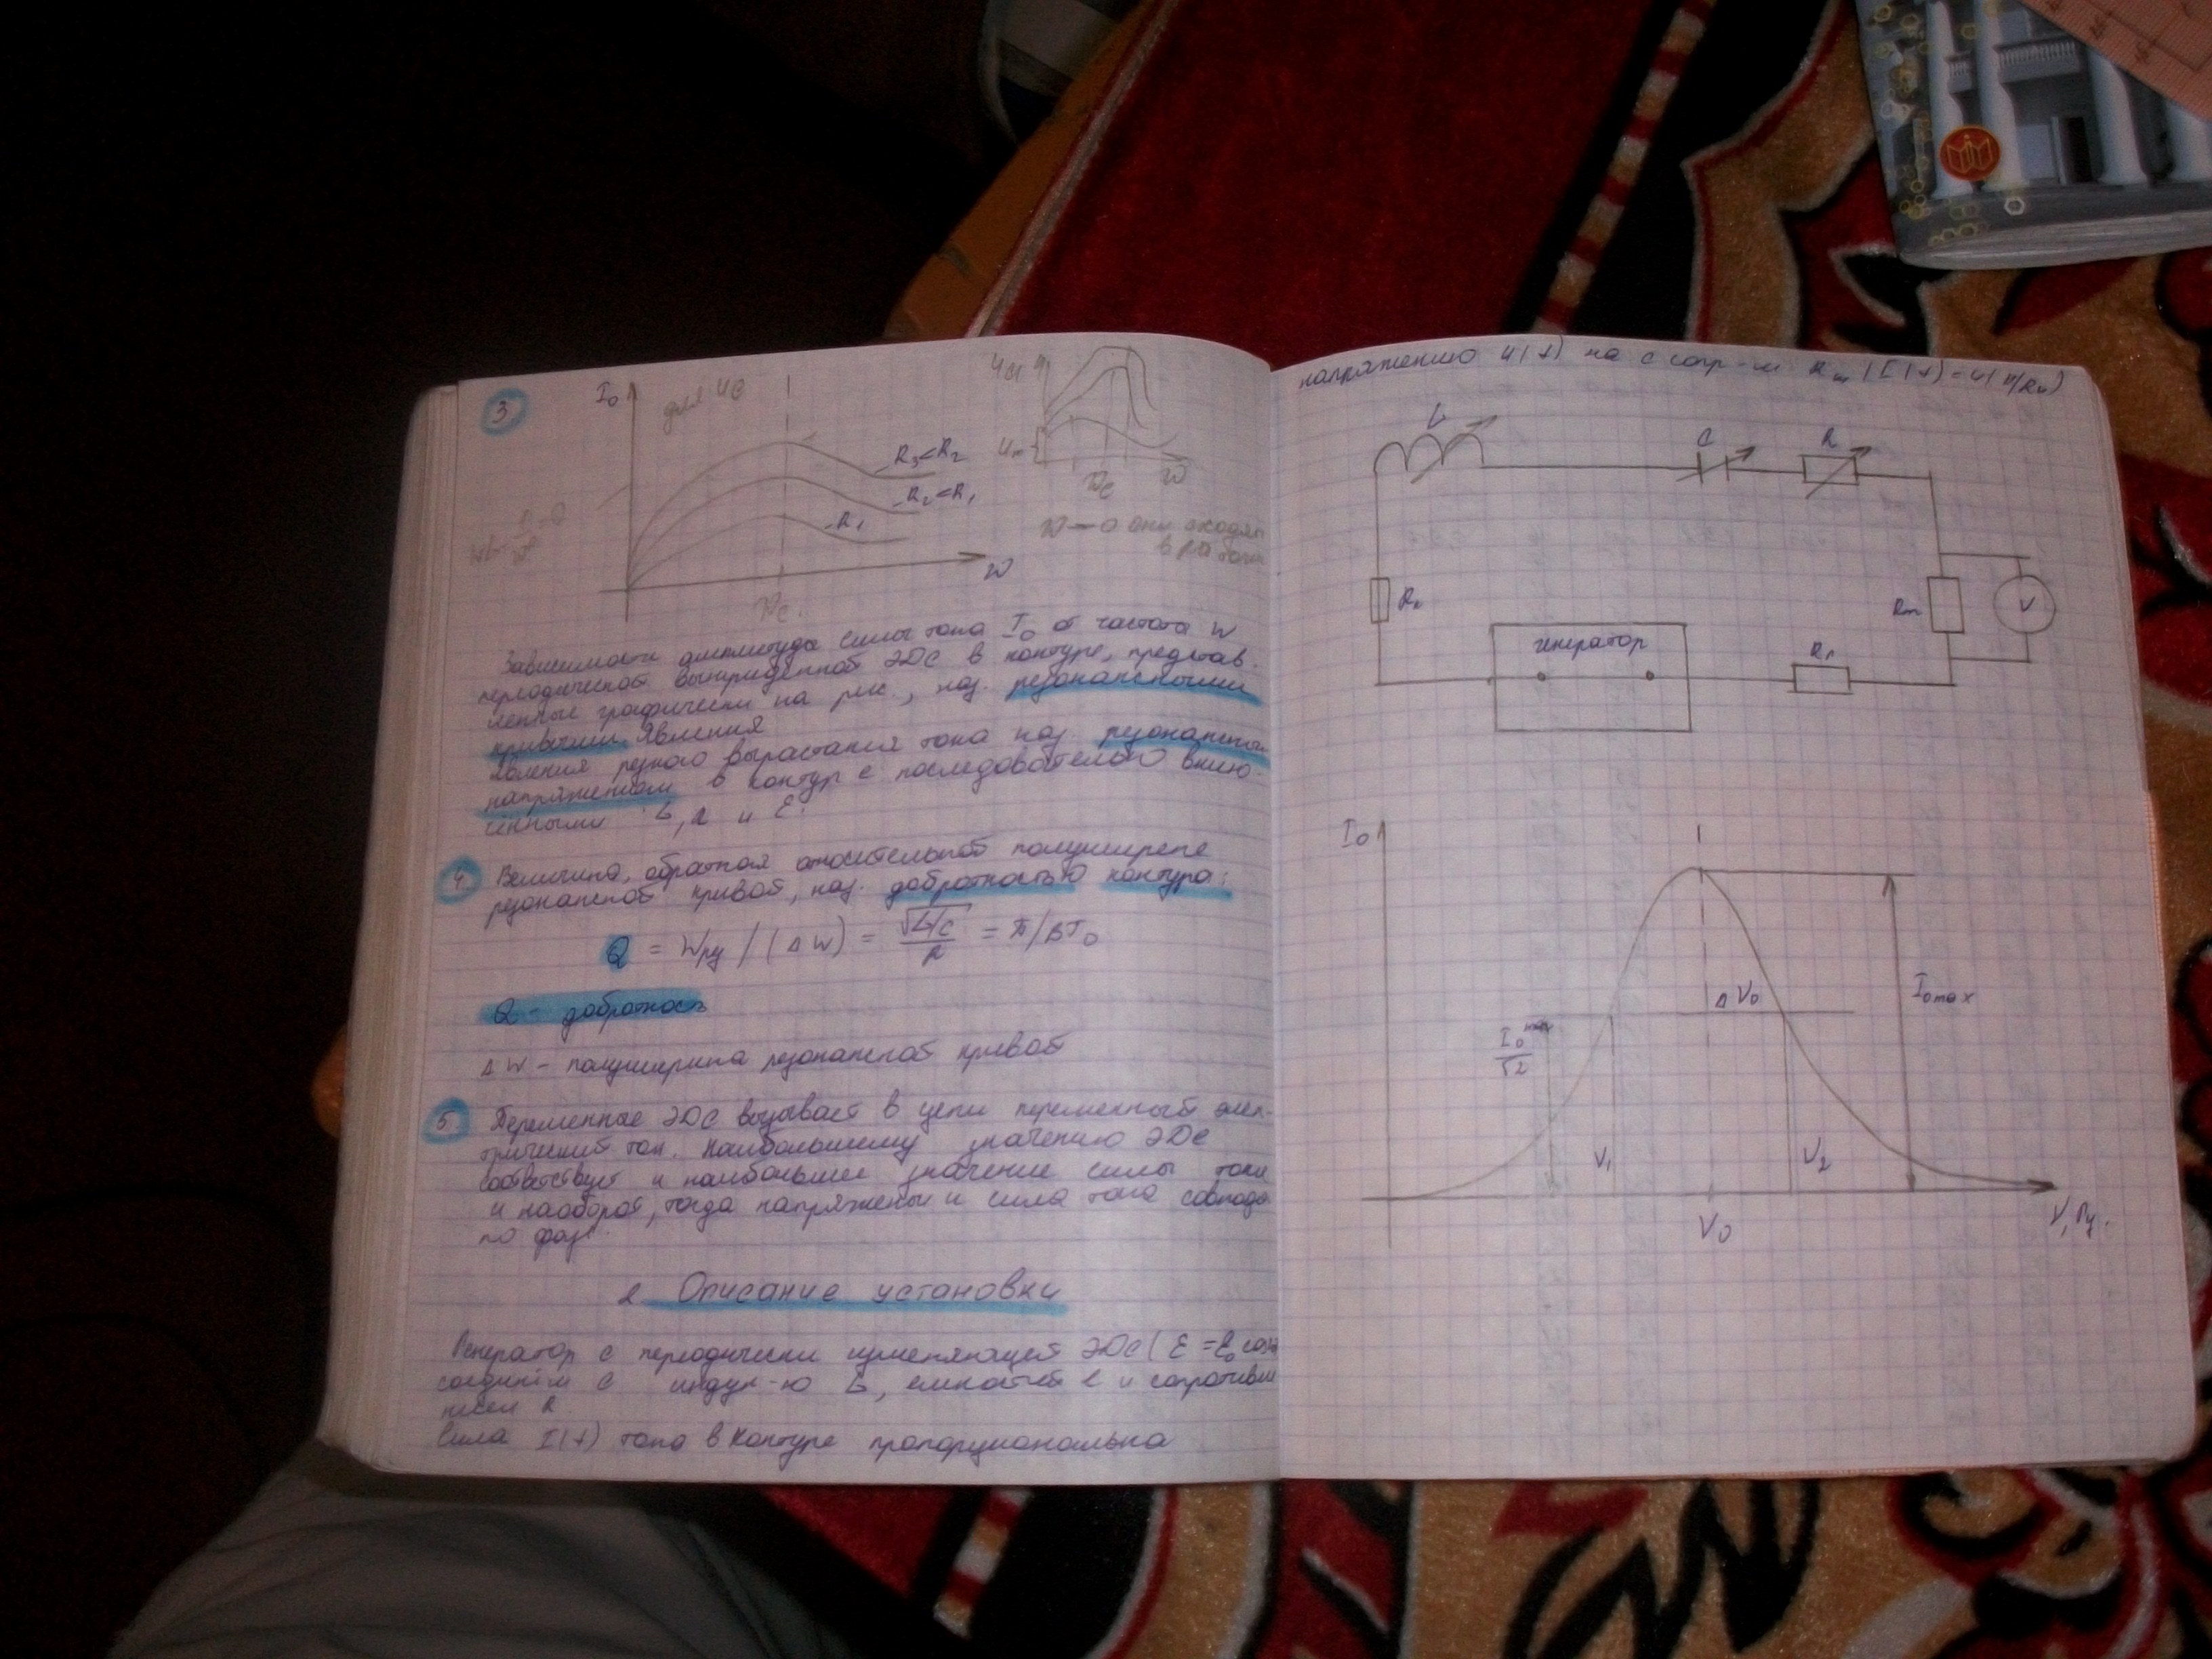 3
I₀
для Uc
R₃<R₂
R₂<R₁
R₁
W
W
W — о они сходят
в
Зависимости амплитуда силы тока I₀ от частота W
периодической вынужденной ЭДС в контуре, представ-
ленные графически на рис., наз. резонансными
кривыми явления
Явления резкого вырастания тока наз. резонансом
напряжением в контур с последовательно вклю-
ченными L, R и Ɛ.
4. Величина, обратная относительной полуширене
резонансной кривой, наз. добротностью контура:
Q = Wрез / (ΔW) = √L/C / R = π/βT₀
Q - добротнось
ΔW - полуширина резонансной кривой
5. Переменное ЭДС вызывает в цепи переменный элек-
трический ток. Наибольшему значению ЭДС
соответствует и наибольшее значение силы тока
и наоборот, тогда напряжены и сила тока совпада
по фазе.
2 Описание установки
Генератор с периодически изменяющей ЭДС ( Ɛ = Ɛ₀ cos
соединён с индук-ю L, емкостей C и сопротивле
нием R.
Сила I(t) тока в контуре пропорциональна
напряжению U(t) на с сопр-м Rm (I(t)=U(t)/Rm)
L
C
R
Rm
V
генератор
Rг
I₀
ΔV₀
I₀ max
I₀ max
√2
V₁
V₂
V₀
V, Гц.